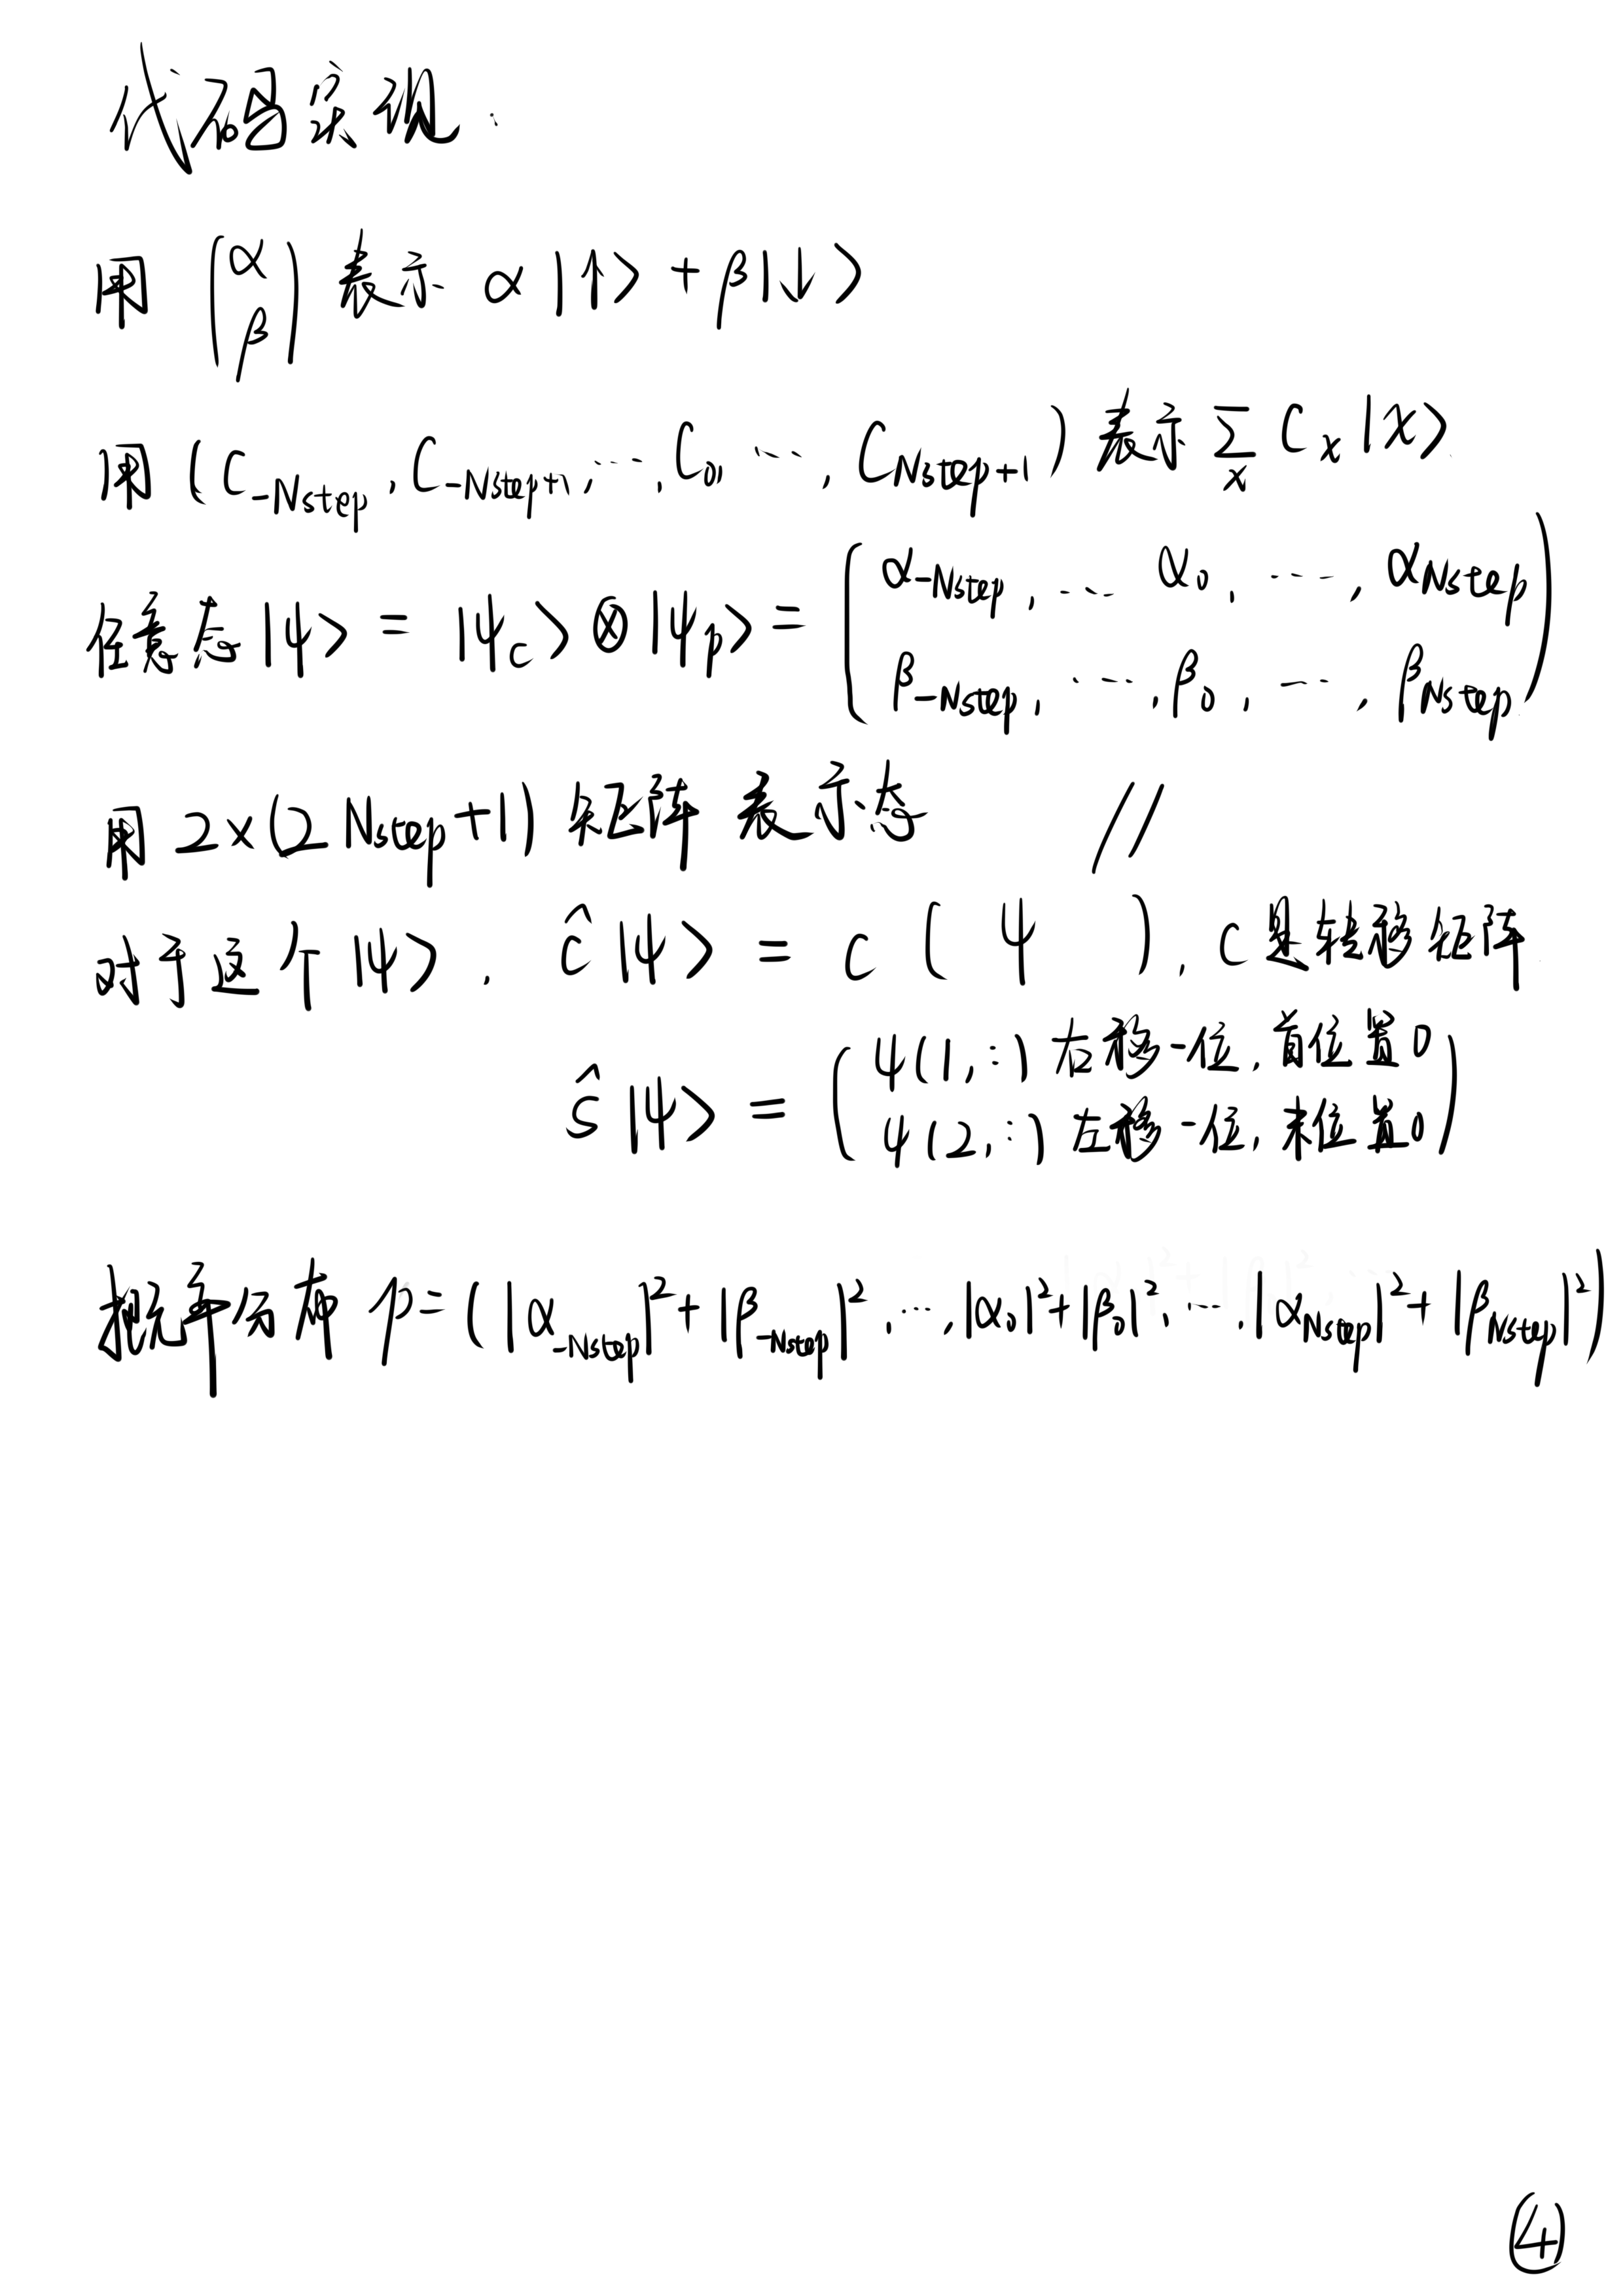 代码实现.
用 (α β) 表示 α|↑> + β|↓>
用 (C_{-Nstep}, C_{-Nstep+1}, ..., C_0, ..., C_{Nstep+1}) 表示 Σ_x C_x |x>.
任意态 |ψ> = |ψ_c> ⊗ |ψ_p> = (α_{-Nstep}, ... α_0, ..., α_{Nstep}
β_{-Nstep}, ..., β_0, ..., β_{Nstep})
用 2×(2Nstep+1) 矩阵 表示态 //
对于这个 |ψ>, ĉ|ψ> = c ( ψ ), c 是转移矩阵
ŝ|ψ> = (ψ(1,:) 右移一位, 首位置0
ψ(2,:) 左移一位, 末位置0)
概率分布 p = (|α_{-Nstep}|² + |β_{-Nstep}|², ..., |α_0|² + |β_0|², ..., |α_{Nstep}|² + |β_{Nstep}|²)
④